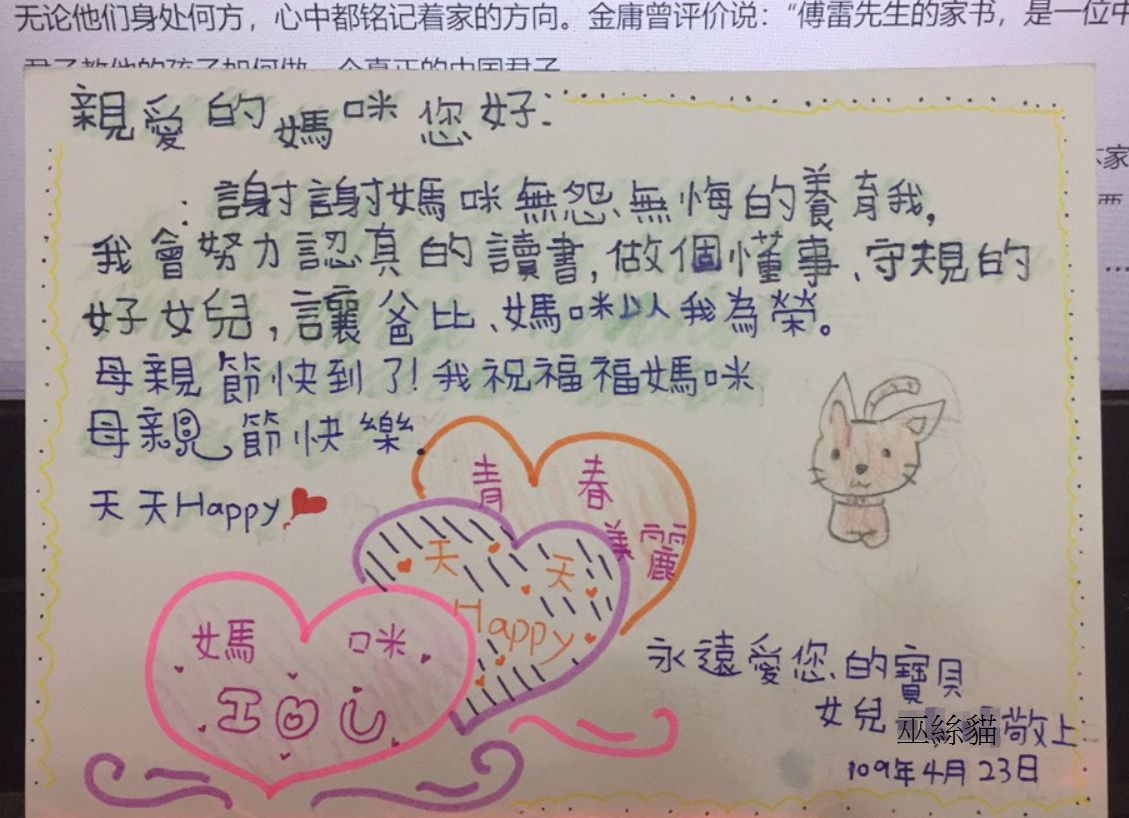 无论他们身处何方，心中都铭记着家的方向。金庸曾评价说：“傅雷先生的家书，是一位中
君子教他的孩子如何做一个真正的中国君子
家
要
...
親愛的媽咪您好：
：謝謝媽咪無怨、無悔的養育我，
我會努力認真的讀書，做個懂事、守規的
好女兒，讓爸比、媽咪以我為榮。
母親節快到了！我祝福福媽咪
母親節快樂.
天天Happy
青春
美麗
天天
Happy
媽咪
I U
永遠愛您、的寶貝
女兒 巫絲貓敬上
109年4月23日